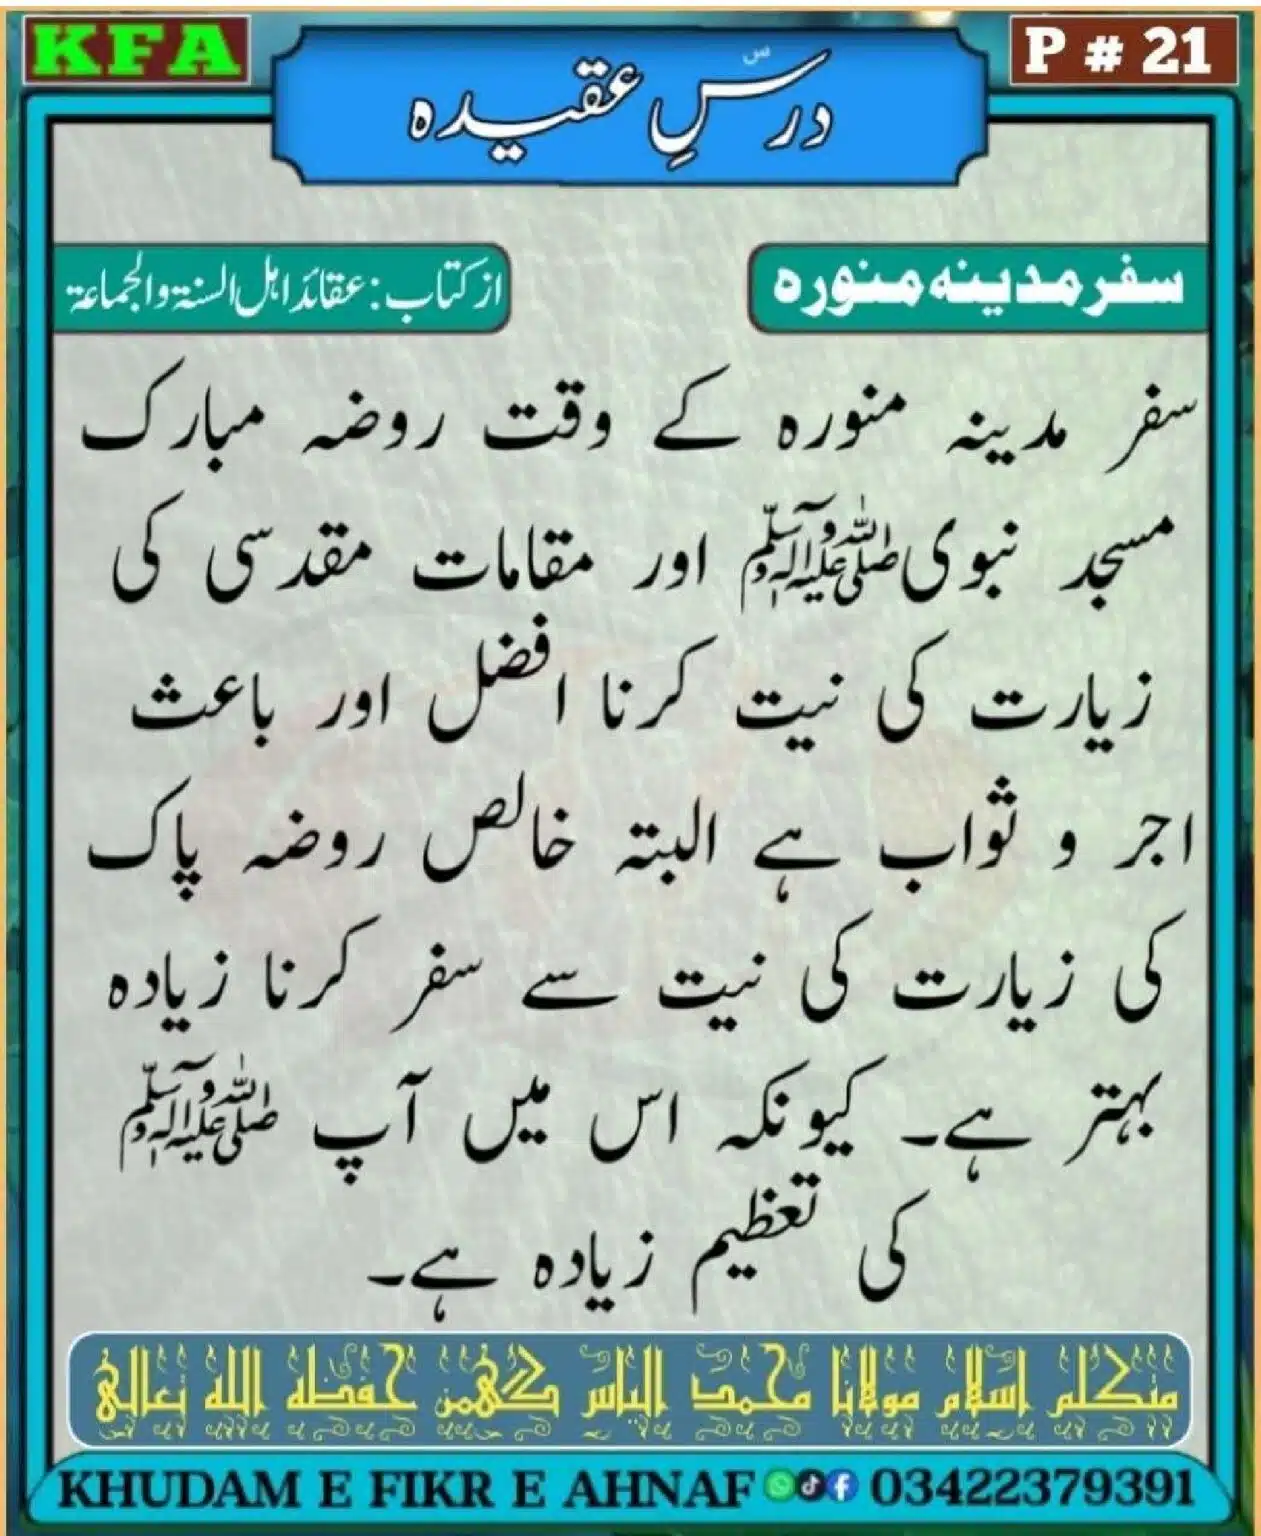 KFA
P # 21
درسِ عقیدہ
سفر مدینہ منورہ
از کتاب: عقائد اہل السنۃ والجماعۃ
سفر مدینہ منورہ کے وقت روضہ مبارک
مسجد نبوی ﷺ اور مقامات مقدسی کی
زیارت کی نیت کرنا افضل اور باعث
اجر و ثواب ہے البتہ خالص روضہ پاک
کی زیارت کی نیت سے سفر کرنا زیادہ
بہتر ہے۔ کیونکہ اس میں آپ ﷺ
کی تعظیم زیادہ ہے۔
متکلم اسلام مولانا محمد الیاس گھمن حفظہ اللہ تعالیٰ
KHUDAM E FIKR E AHNAF 03422379391